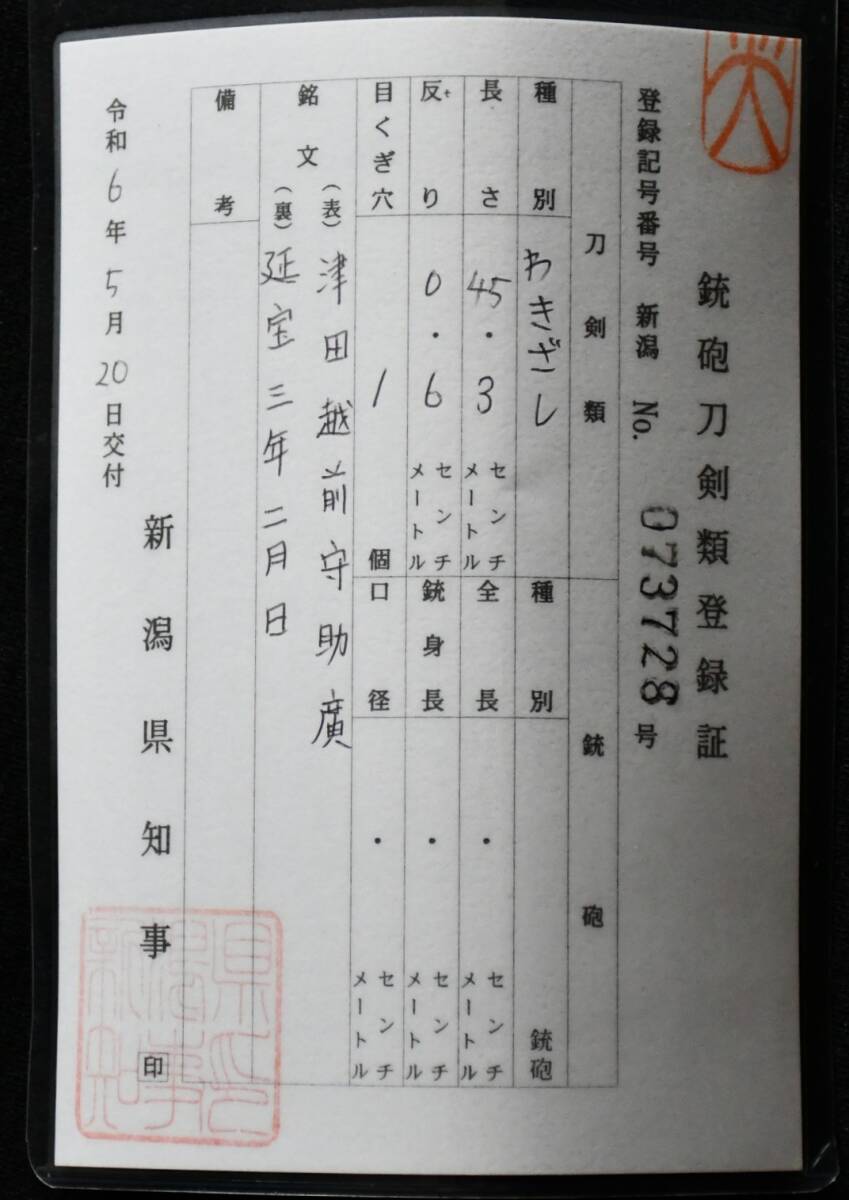 銃砲刀剣類登録証
登録記号番号 新潟 No. 073728 号
刀剣類
種別 わきざし
長さ 45・3 センチメートル
反り 0・6 センチメートル
そ
目くぎ穴 1 個
銃砲
種別 銃砲
全長 ・ センチメートル
銃身長 ・ センチメートル
口径 ・ センチメートル
銘文
(表) 津田越前守助廣
(裏) 延宝三年二月日
備考
令和6年5月20日交付
新潟県知事 印